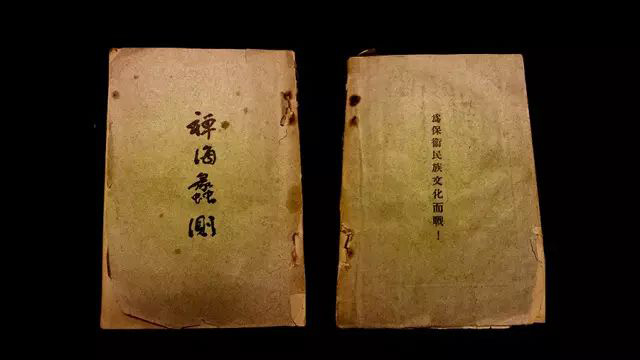 禪海蠡測
為保衛民族文化而戰！